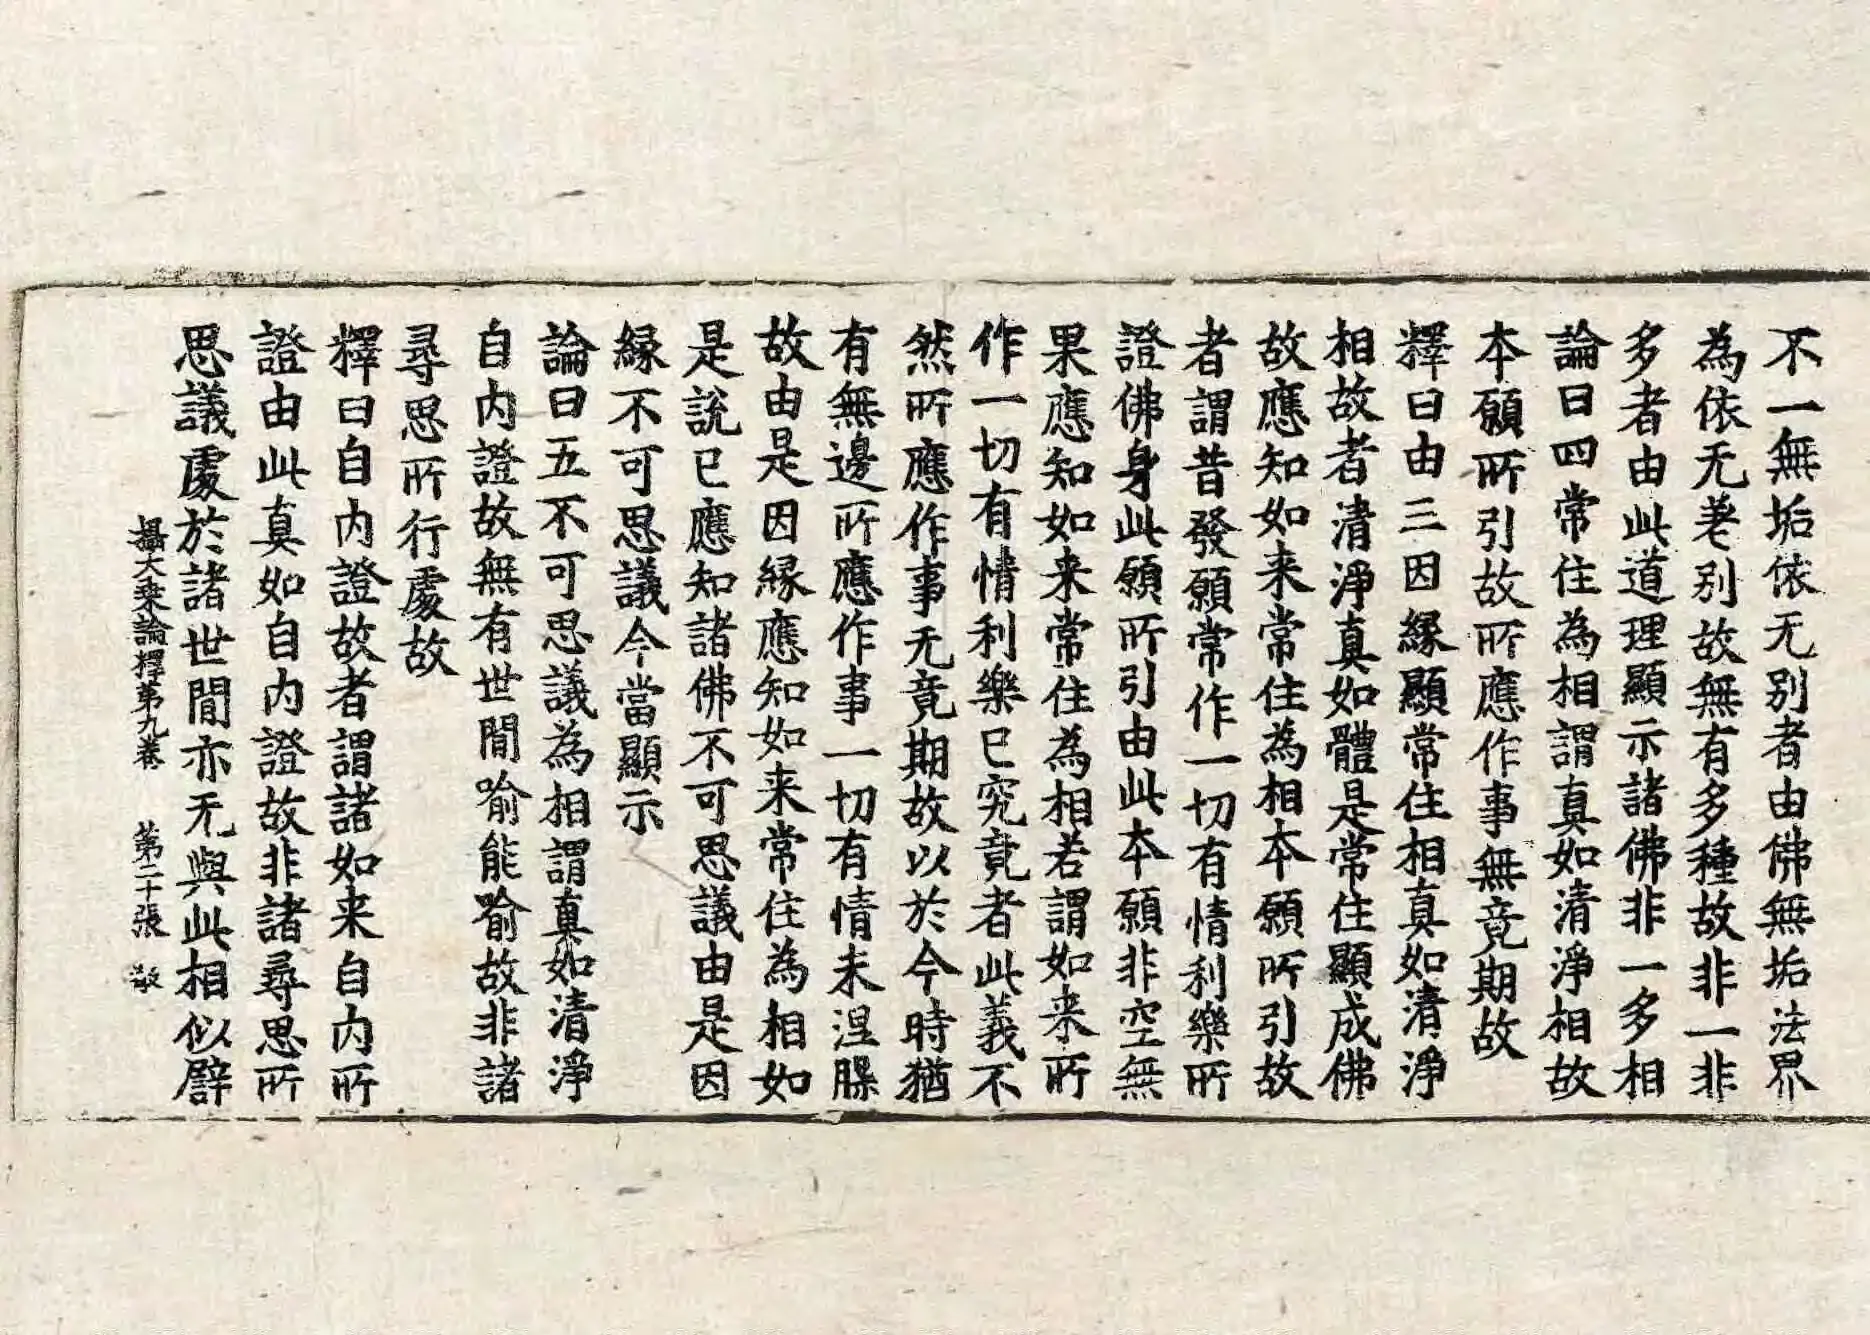 不一無垢依无別者由佛無垢法界
為依无差别故無有多種故非一非
多者由此道理顯示諸佛非一多相
論曰四常住為相謂真如清淨相故
本願所引故所應作事無竟期故
釋曰由三因緣顯常住相真如清淨
相故者清淨真如體是常住顯成佛
故應知如来常住為相本願所引故
者謂昔發願常作一切有情利樂所
證佛身此願所引由此本願非空無
果應知如来常住為相若謂如来所
作一切有情利樂已究竟者此義不
然所應作事无竟期故以於今時猶
有無邊所應作事一切有情未涅槃
故由是因緣應知如来常住為相如
是說已應知諸佛不可思議由是因
緣不可思議今當顯示
論曰五不可思議為相謂真如清淨
自内證故無有世間喻能喻故非諸
尋思所行處故
釋曰自内證故者謂諸如来自内所
證由此真如自内證故非諸尋思所
思議處於諸世間亦无與此相似譬
攝大乗論釋第九卷　第二十張　敬